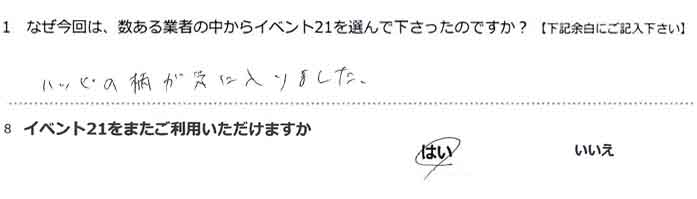 1 なぜ今回は、数ある業者の中からイベント21を選んで下さったのですか？【下記余白にご記入下さい】
ハッピの柄が気に入りました。
8 イベント21をまたご利用いただけますか
はい いいえ